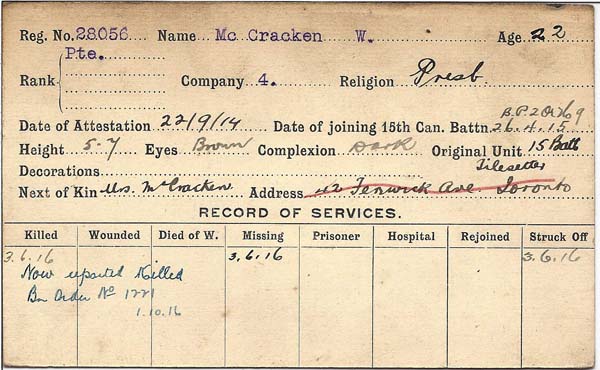 Reg. No. 28056 Name Mc Cracken W. Age 22
Rank Pte. Company 4. Religion Presb.
B.P.2
Date of Attestation 22/9/14 Date of joining 15th Can. Battn. 26.4.15
Height 5-7 Eyes Brown Complexion Dark Original Unit 15 Batt
Decorations Tilesetter
Next of Kin Mrs. McCracken Address 42 Fenwick Ave. Toronto
RECORD OF SERVICES.
Killed Wounded Died of W. Missing Prisoner Hospital Rejoined Struck Off
3.6.16 3.6.16 3.6.16
Now reported Killed
Bn Order No 1221
1.10.16